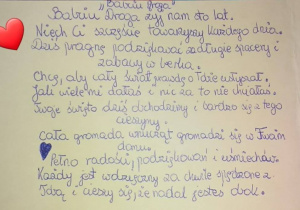 "Babciu Droga"
Babciu Droga żyj nam sto lat.
Niech Ci szczęście towarzyszy każdego dnia.
Dziś pragnę podziękować za długie spacery i
zabawy w berka.
Chcę, aby cały świat prawdę o Tobie usłyszał.
Jak wiele mi dałaś i nic za to nie chciałaś.
Twoje święto dziś obchodzimy i bardzo się z tego
cieszymy.
Cała gromada wnucząt gromadzi się w Twoim
domu.
Pełno radości, podziękowań i uśmiechów.
Każdy jest wdzięczny za chwile spędzone z
Tobą i cieszy się, że nadal jesteś obok.